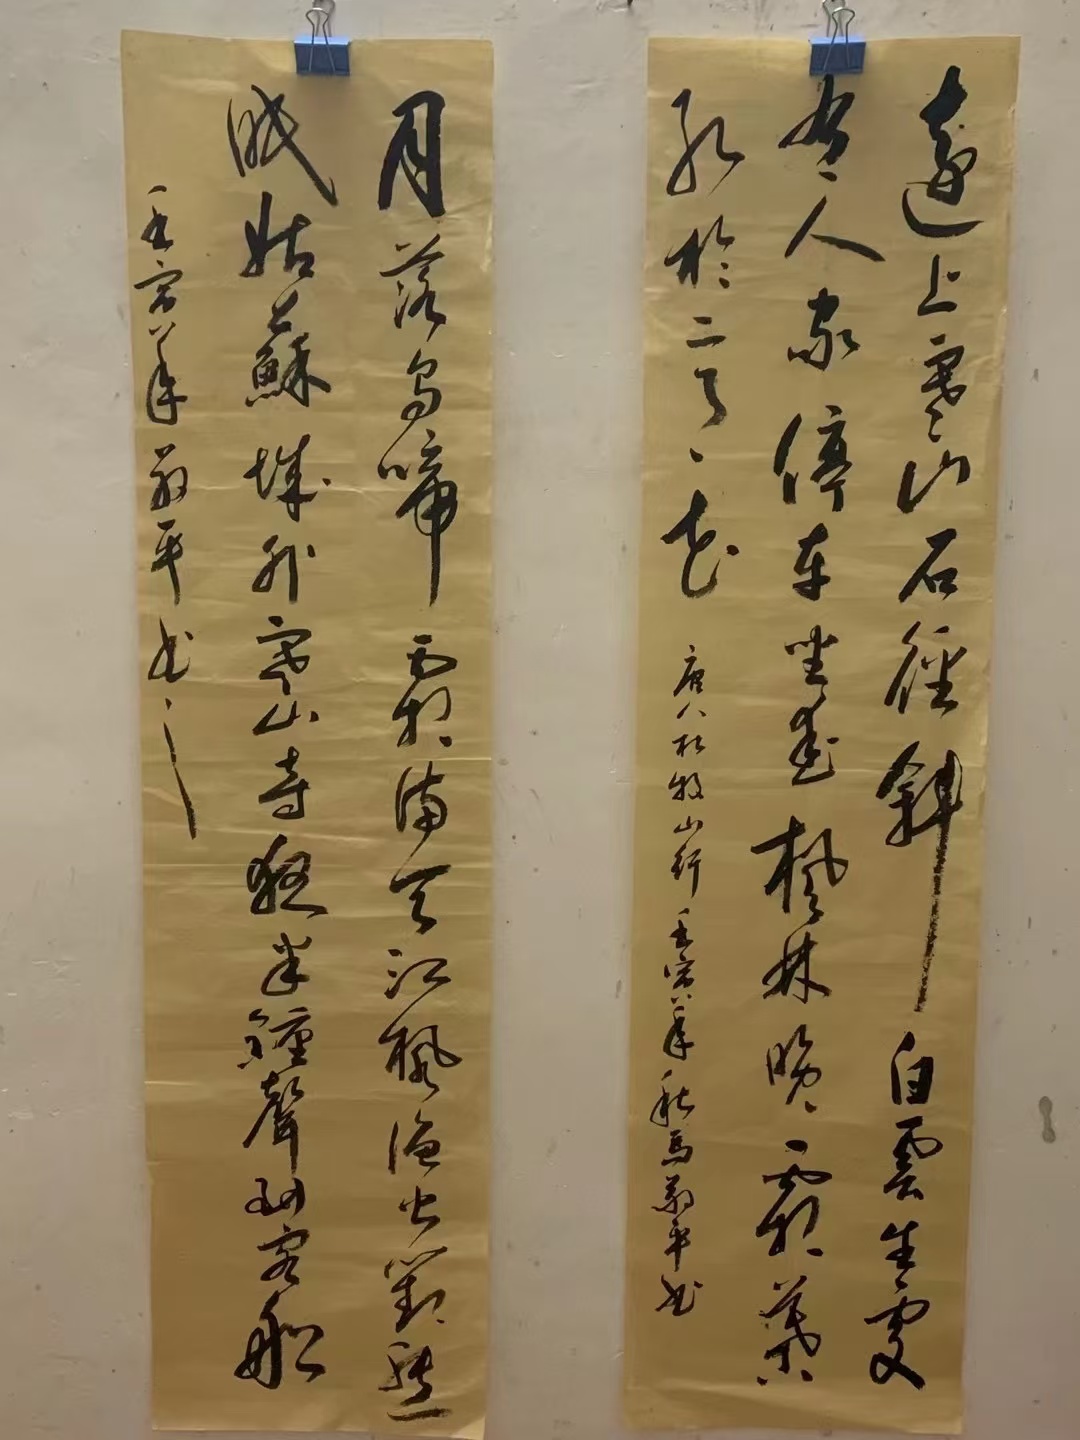 遠上寒山石徑斜白雲生處
有人家停車坐愛楓林晚霜葉
紅於二月花
唐人杜牧山行壬寅年秋馬平書
月落烏啼霜滿天江楓漁火對愁
眠姑蘇城外寒山寺夜半鐘聲到客船
壬寅年平書